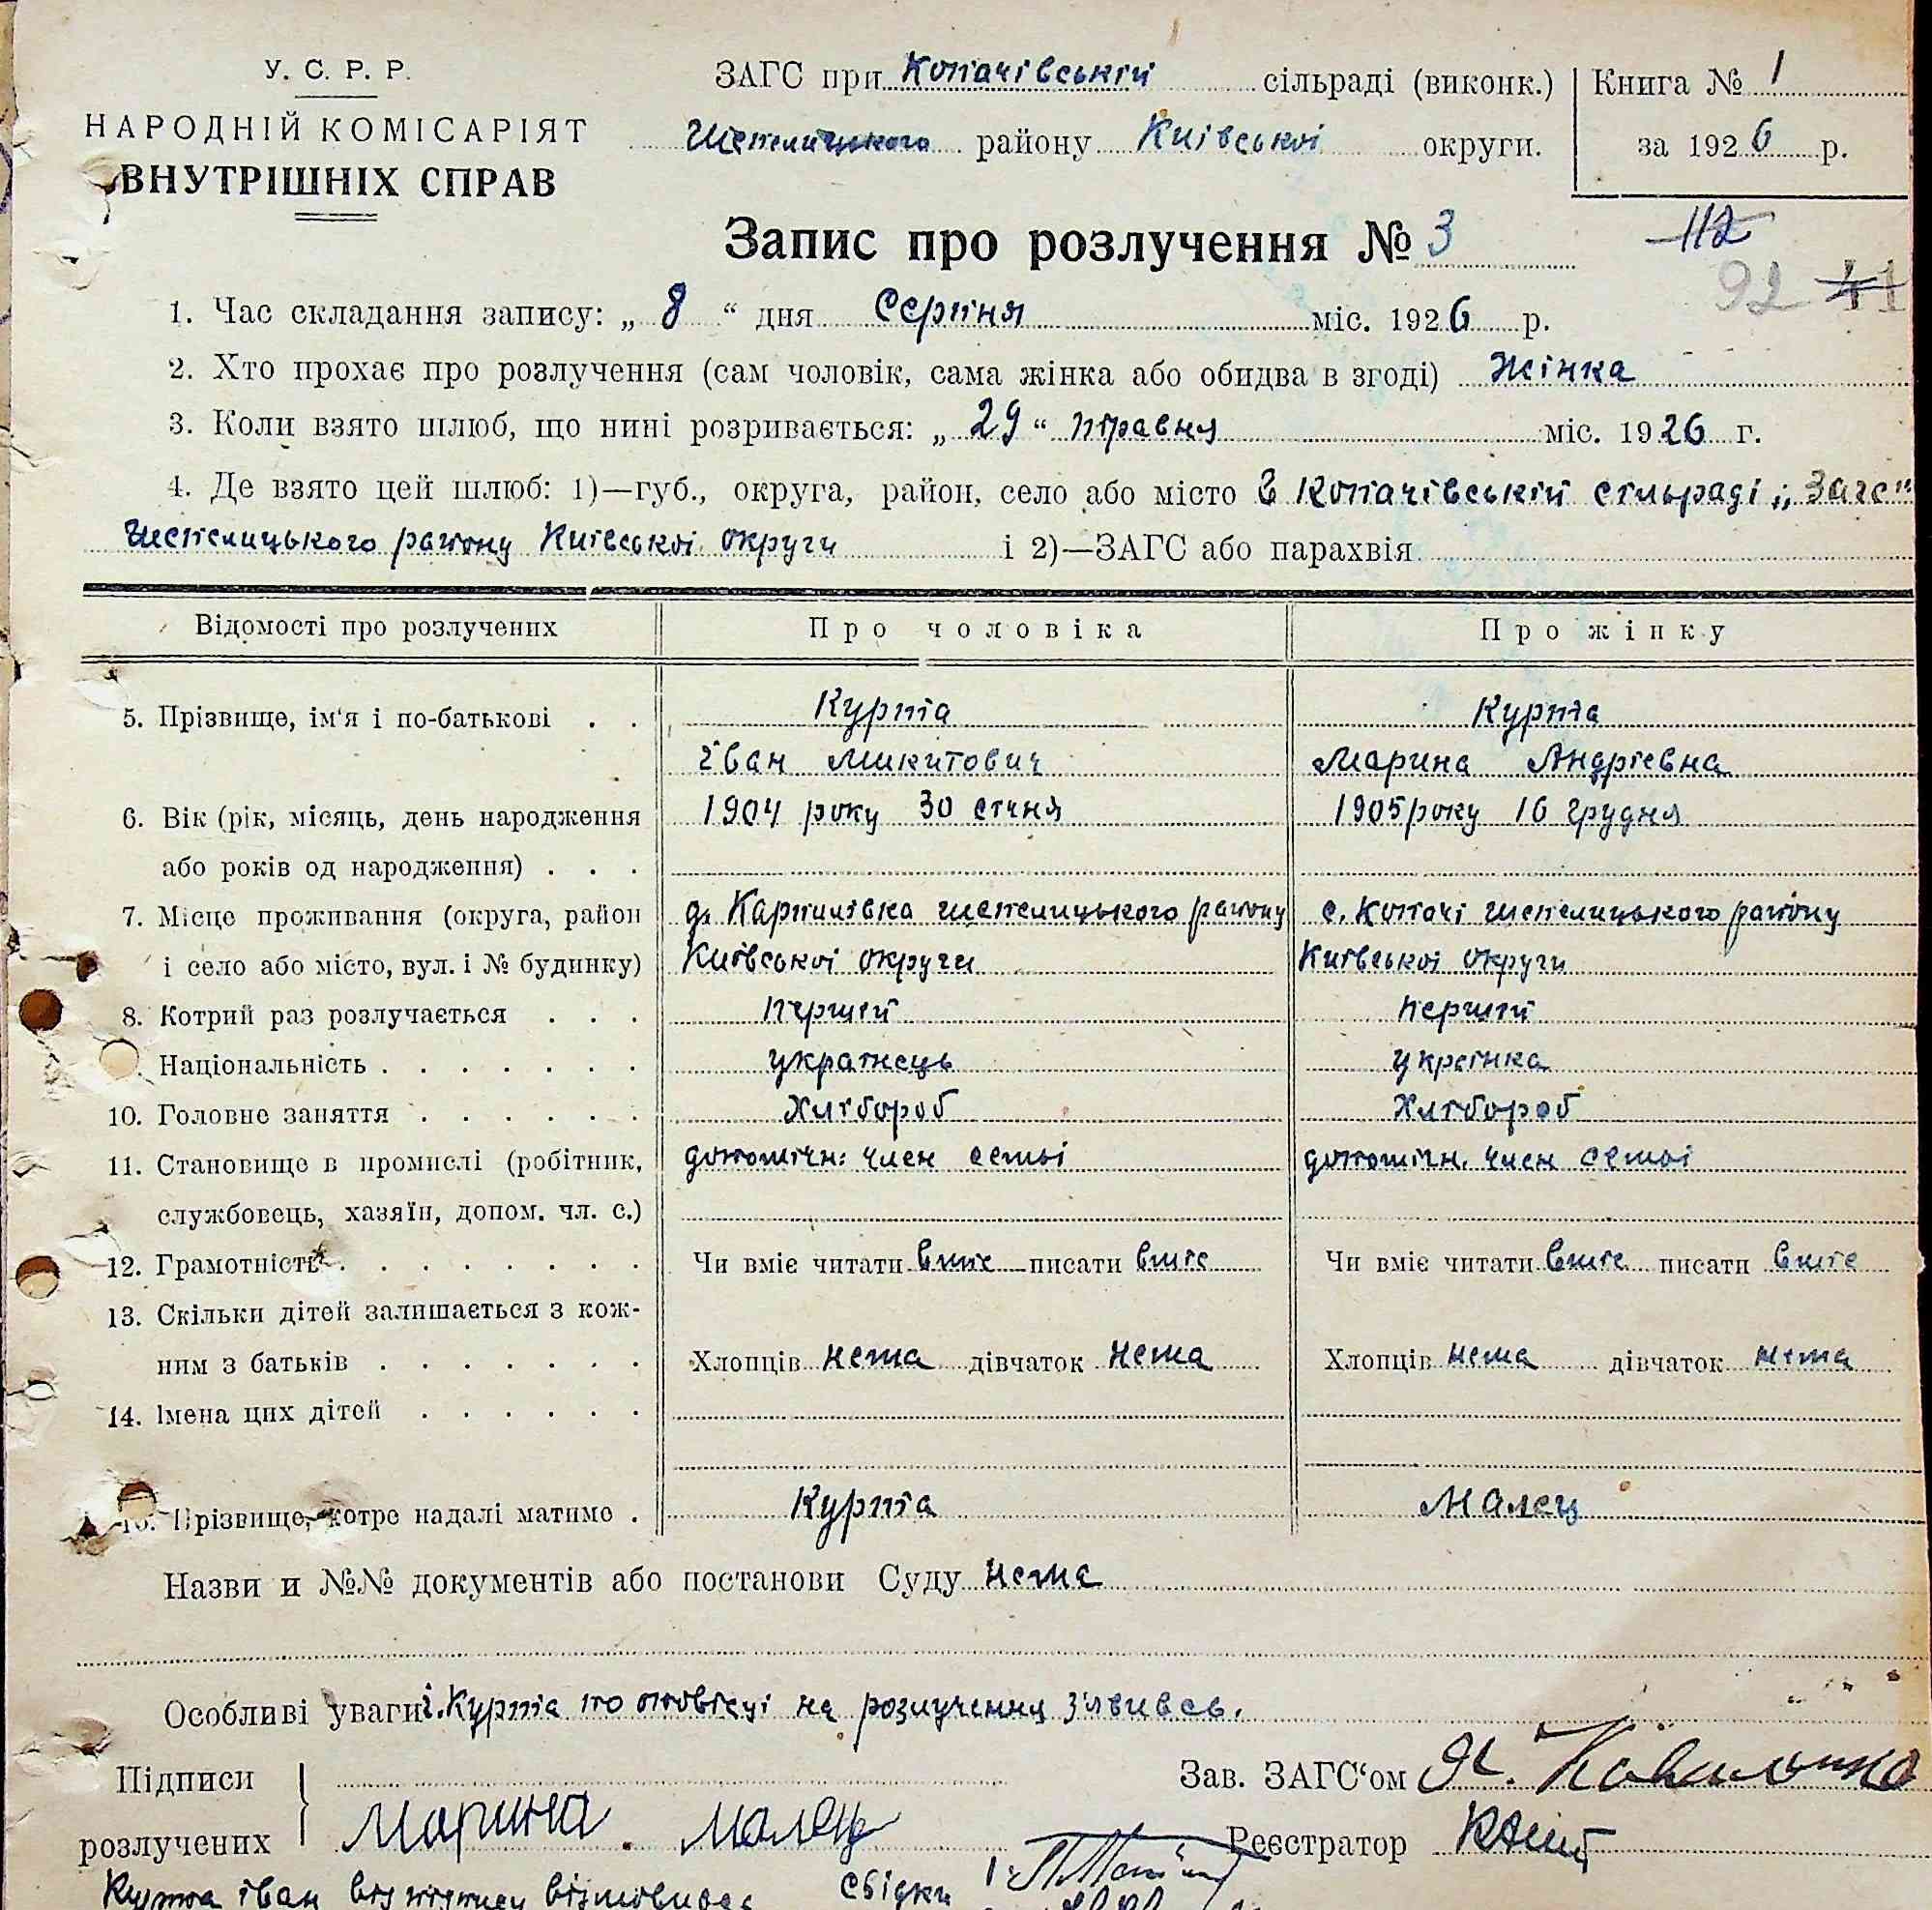 У. С. Р. Р.
НАРОДНІЙ КОМІСАРІЯТ
ВНУТРІШНІХ СПРАВ
ЗАГС при Копачівській сільраді (виконк.)
Шепелицького району Київської округи.
Книга № 1
за 1926 р.
Запис про розлучення № 3
112
92 41
1. Час складання запису: „ 8 “ дня Серпня міс. 1926 р.
2. Хто прохає про розлучення (сам чоловік, сама жінка або обидва в згоді) Жінка
3. Коли взято шлюб, що нині розривається: „ 29 “ травня міс. 1926 г.
4. Де взято цей шлюб: 1)—губ., округа, район, село або місто в Копачівській сільраді „Загс“
Шепелицького району Київської округи і 2)—ЗАГС або парахвія
Відомості про розлучених Про чоловіка Про жінку
5. Прізвище, ім‘я і по-батькові . . Курпта Курпта
Іван Микитович Марина Андріевна
6. Вік (рік, місяць, день народження 1904 року 30 січня 1905 року 16 грудня
або років од народження) . . .
7. Місце проживання (округа, район д. Карпилівка Шепелицького району с. Копачі Шепелицького району
і село або місто, вул. і № будинку) Київської округи Київської округи
8. Котрий раз розлучається . . . Перший Перший
Національність . . . . . . . українець українка
10. Головне заняття . . . . . . Хлібороб Хлібороб
11. Становище в промислі (робітник, допоміжн: член семьі допоміжн. член семьі
службовець, хазяїн, допом. чл. с.)
12. Грамотність . . . . . . . Чи вміє читати вміє писати вміє Чи вміє читати вміє писати вміє
13. Скільки дітей залишається з кож-
ним з батьків . . . . . . . Хлопців нема дівчаток нема Хлопців нема дівчаток нема
14. Імена цих дітей . . . . . .
Прізвище, котре надалі матиме . Курпта Малец
Назви и №№ документів або постанови Суду нема
Особливі уваги І. Курпта по повісці на розлучення з'явивсь.
Підписи
розлучених
Марина Малец
Зав. ЗАГС‘ом
Реєстратор
Іван від підпису відмовивсь Свідки 1.